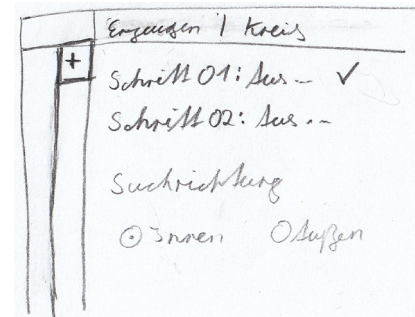 Erzeugen | Kreis
+
Schritt 01: Aus... ✓
Schritt 02: Aus...
Suchrichtung
Innen Außen